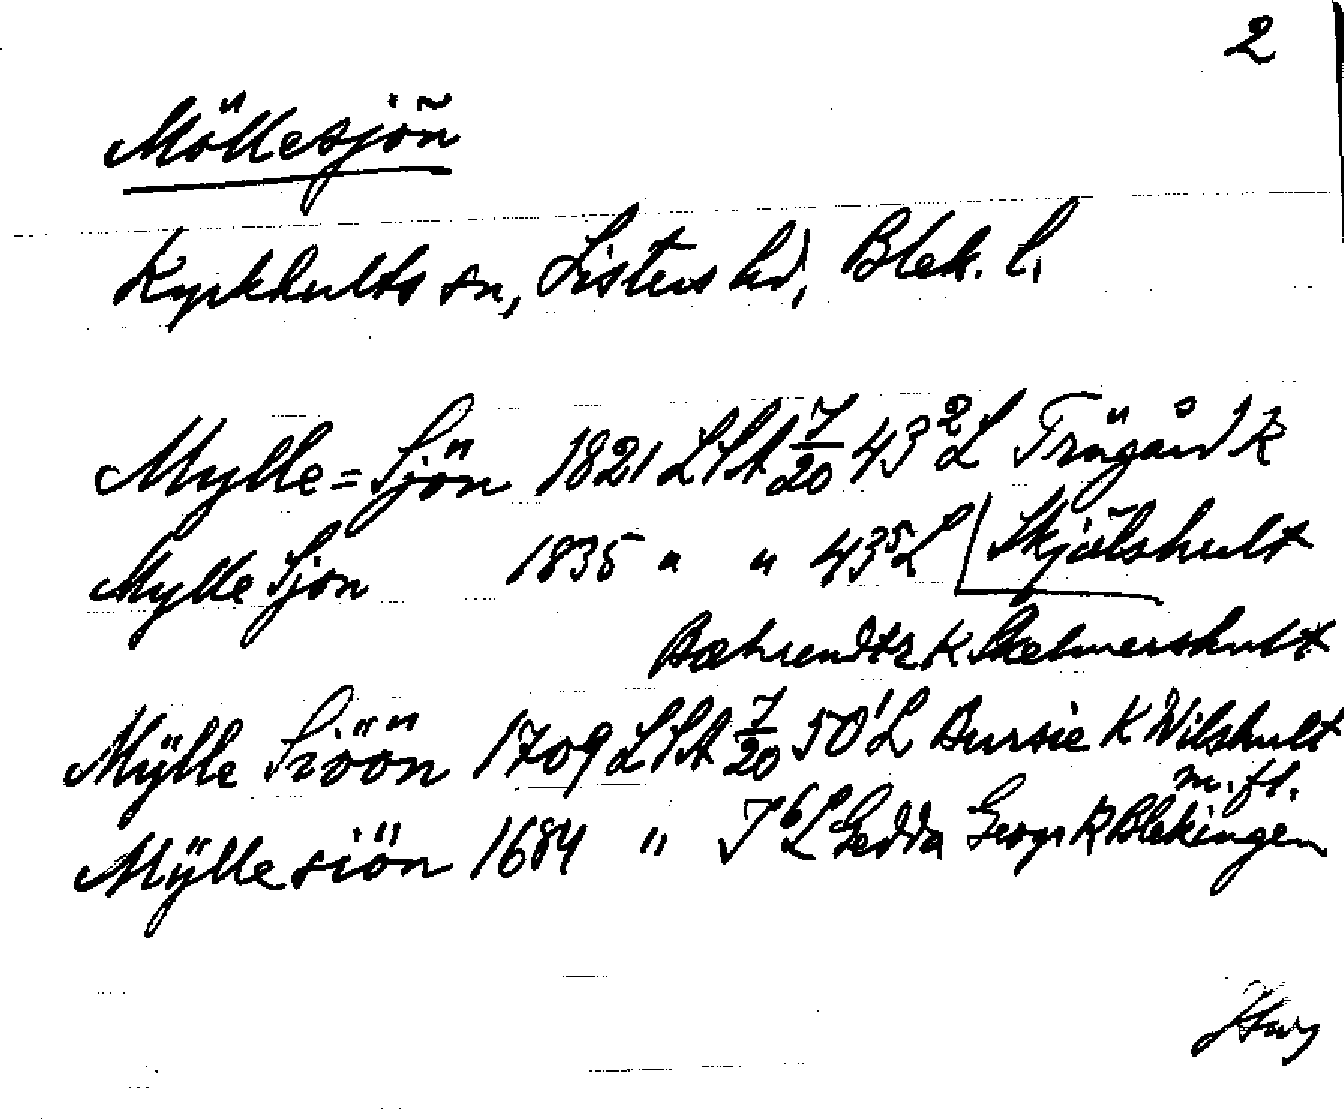 2
Möllesjön
Kyrkhults sn, Listers hd, Blek. l.
Mylle=Sjön 1821 LSA 7/20 43²L Trägård K
Mylle Sjon 1835 " " 43⁵L Skjälshult
Bæhrendtz K Skelmershult
Mÿlle Siöön 1709 LSA 7/20 50¹L Bursie K Wilshult
m. fl.
Mÿllesiön 1684 " J⁶L Gedda Geogr K Blekingen